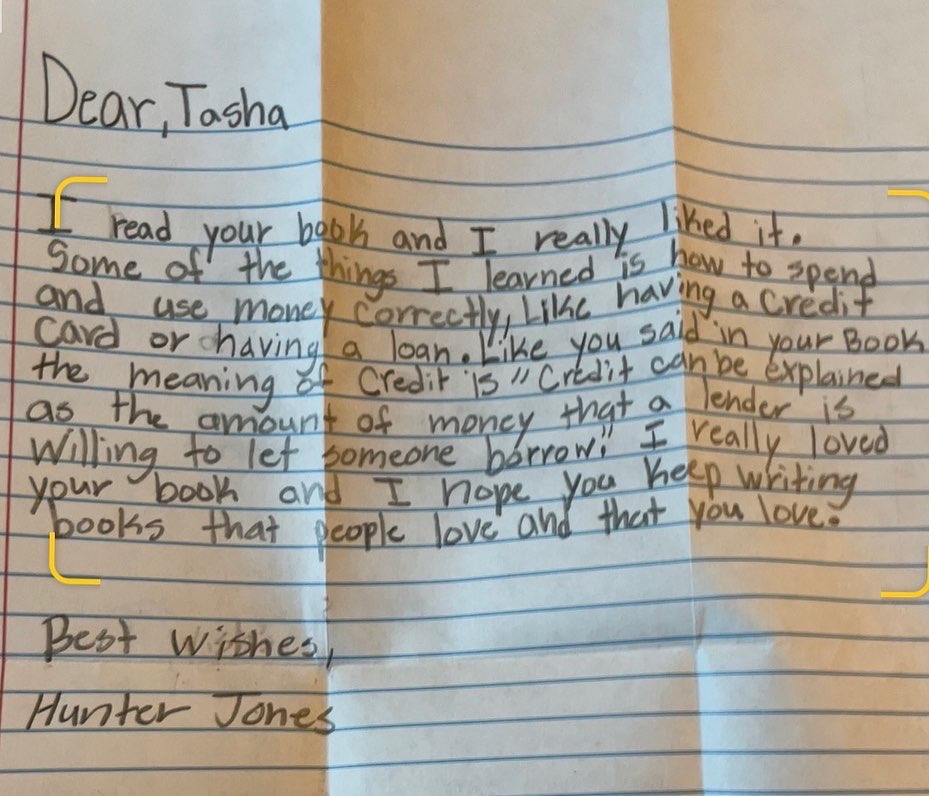 Dear, Tasha
I read your book and I really liked it.
Some of the things I learned is how to spend
and use money correctly, Like having a Credit
Card or having a loan. Like you said in your Book
the meaning of Credit is "Credit can be explained
as the amount of money that a lender is
Willing to let someone borrow." I really loved
your book and I hope you keep writing
books that people love and that you love.
Best Wishes,
Hunter Jones